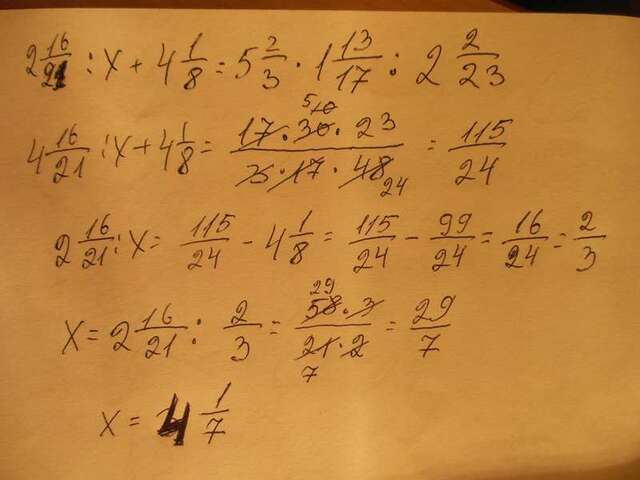 2 16/21 : x + 4 1/8 = 5 2/3 · 1 13/17 : 2 2/23
4 16/21 : x + 4 1/8 = 17 · 30 · 23 / 3 · 17 · 48 5 10 24 = 115/24
2 16/21 : x = 115/24 - 4 1/8 = 115/24 - 99/24 = 16/24 = 2/3
x = 2 16/21 : 2/3 = 58 · 3 / 21 · 2 29 7 = 29/7
x = 4 1/7